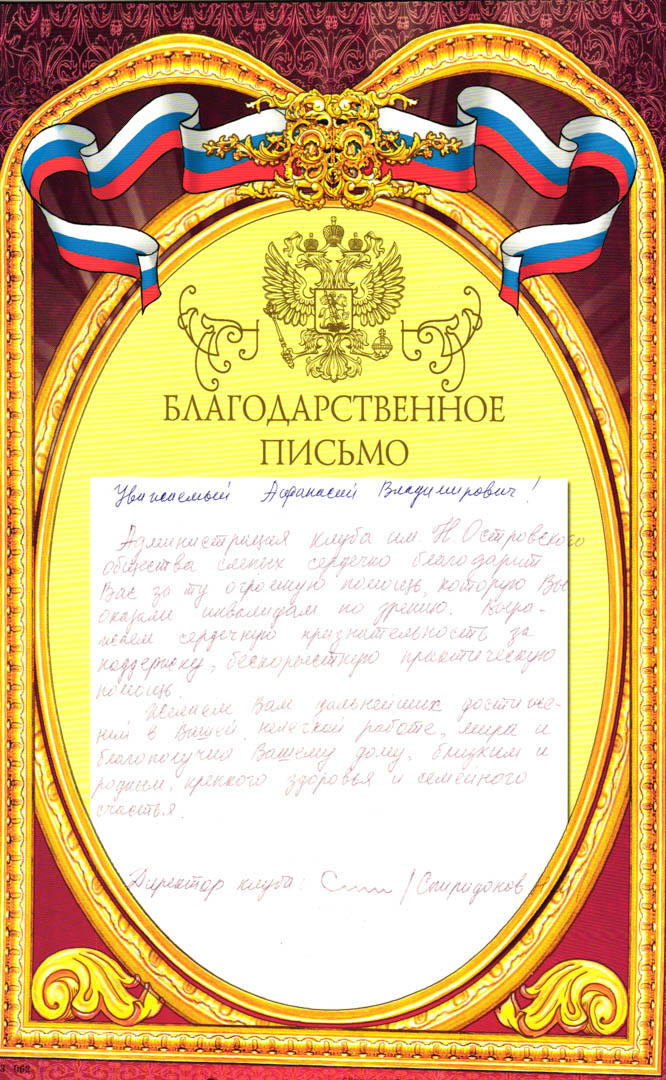 БЛАГОДАРСТВЕННОЕ
ПИСЬМО
Уважаемый Афанасий Владимирович!
Администрация клуба им. Н. Островского
общества слепых сердечно благодарит
Вас за ту огромную помощь, которую Вы
оказали инвалидам по зрению. Выра-
жаем сердечную признательность за
поддержку, бескорыстную практическую
помощь.
Желаем Вам дальнейших достиже-
ний в Вашей нелегкой работе, мира и
благополучия Вашему дому, близким и
родным, крепкого здоровья и семейного
счастья.
Директор клуба: /Спиридонов
З. 062